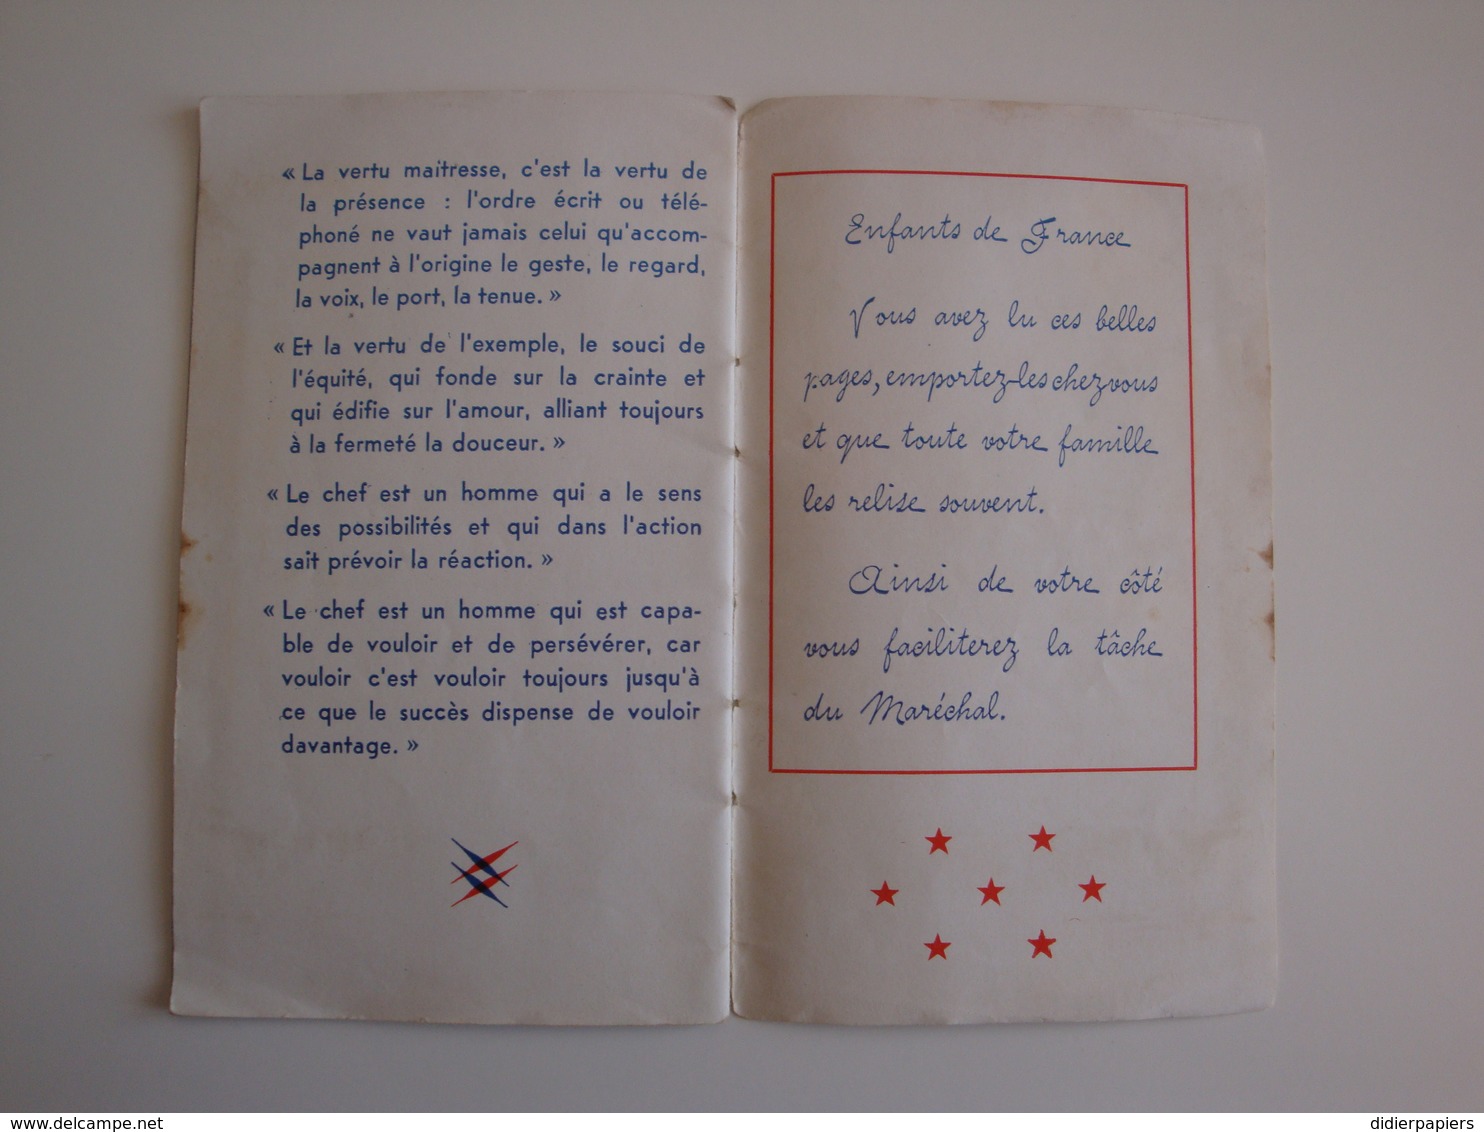 « La vertu maîtresse, c'est la vertu de
la présence : l'ordre écrit ou télé-
phoné ne vaut jamais celui qu'accom-
pagnent à l'origine le geste, le regard,
la voix, le port, la tenue. »
« Et la vertu de l'exemple, le souci de
l'équité, qui fonde sur la crainte et
qui édifie sur l'amour, alliant toujours
à la fermeté la douceur. »
« Le chef est un homme qui a le sens
des possibilités et qui dans l'action
sait prévoir la réaction. »
« Le chef est un homme qui est capa-
ble de vouloir et de persévérer, car
vouloir c'est vouloir toujours jusqu'à
ce que le succès dispense de vouloir
davantage. »
Enfants de France
Vous avez lu ces belles
pages, emportez-les chez vous
et que toute votre famille
les relise souvent.
Ainsi de votre côté
vous faciliterez la tâche
du Maréchal.
http://www.delcampe.net
didierpapiers